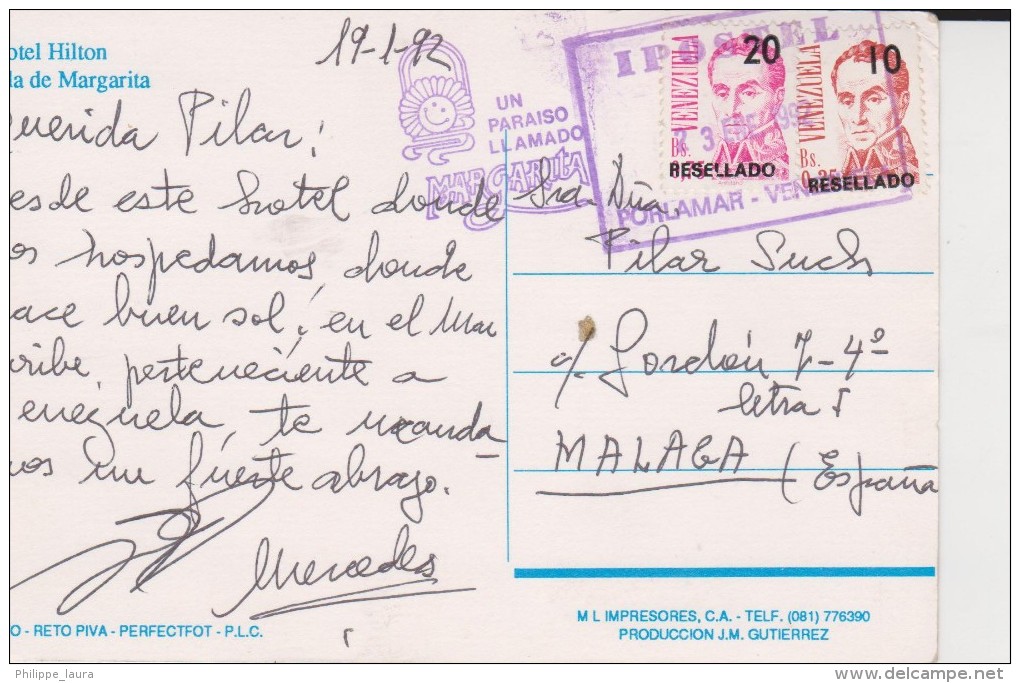 otel Hilton
la de Margarita
19-1-92
uerida Pilar!
esde este hotel donde
os hospedamos, donde
ace buen sol, en el Mar
aribe, perteneciente a
enezuela, te manda
mos un fuerte abrazo.
Mercedes
O - RETO PIVA - PERFECTFOT - P.L.C.
UN
PARAISO
LLAMADO
MARGARITA
IPOSTEL
PORLAMAR - VEN
VENEZUELA
20
Bs.
RESELLADO
VENEZUELA
10
Bs.
0,25
RESELLADO
Sra. Dña.
Pilar Such
c/. Gordón 7-4º
letra I
MALAGA
(España
M L IMPRESORES, C.A. - TELF. (081) 776390
PRODUCCION J.M. GUTIERREZ
Philippe_laura
www.delcampe.net